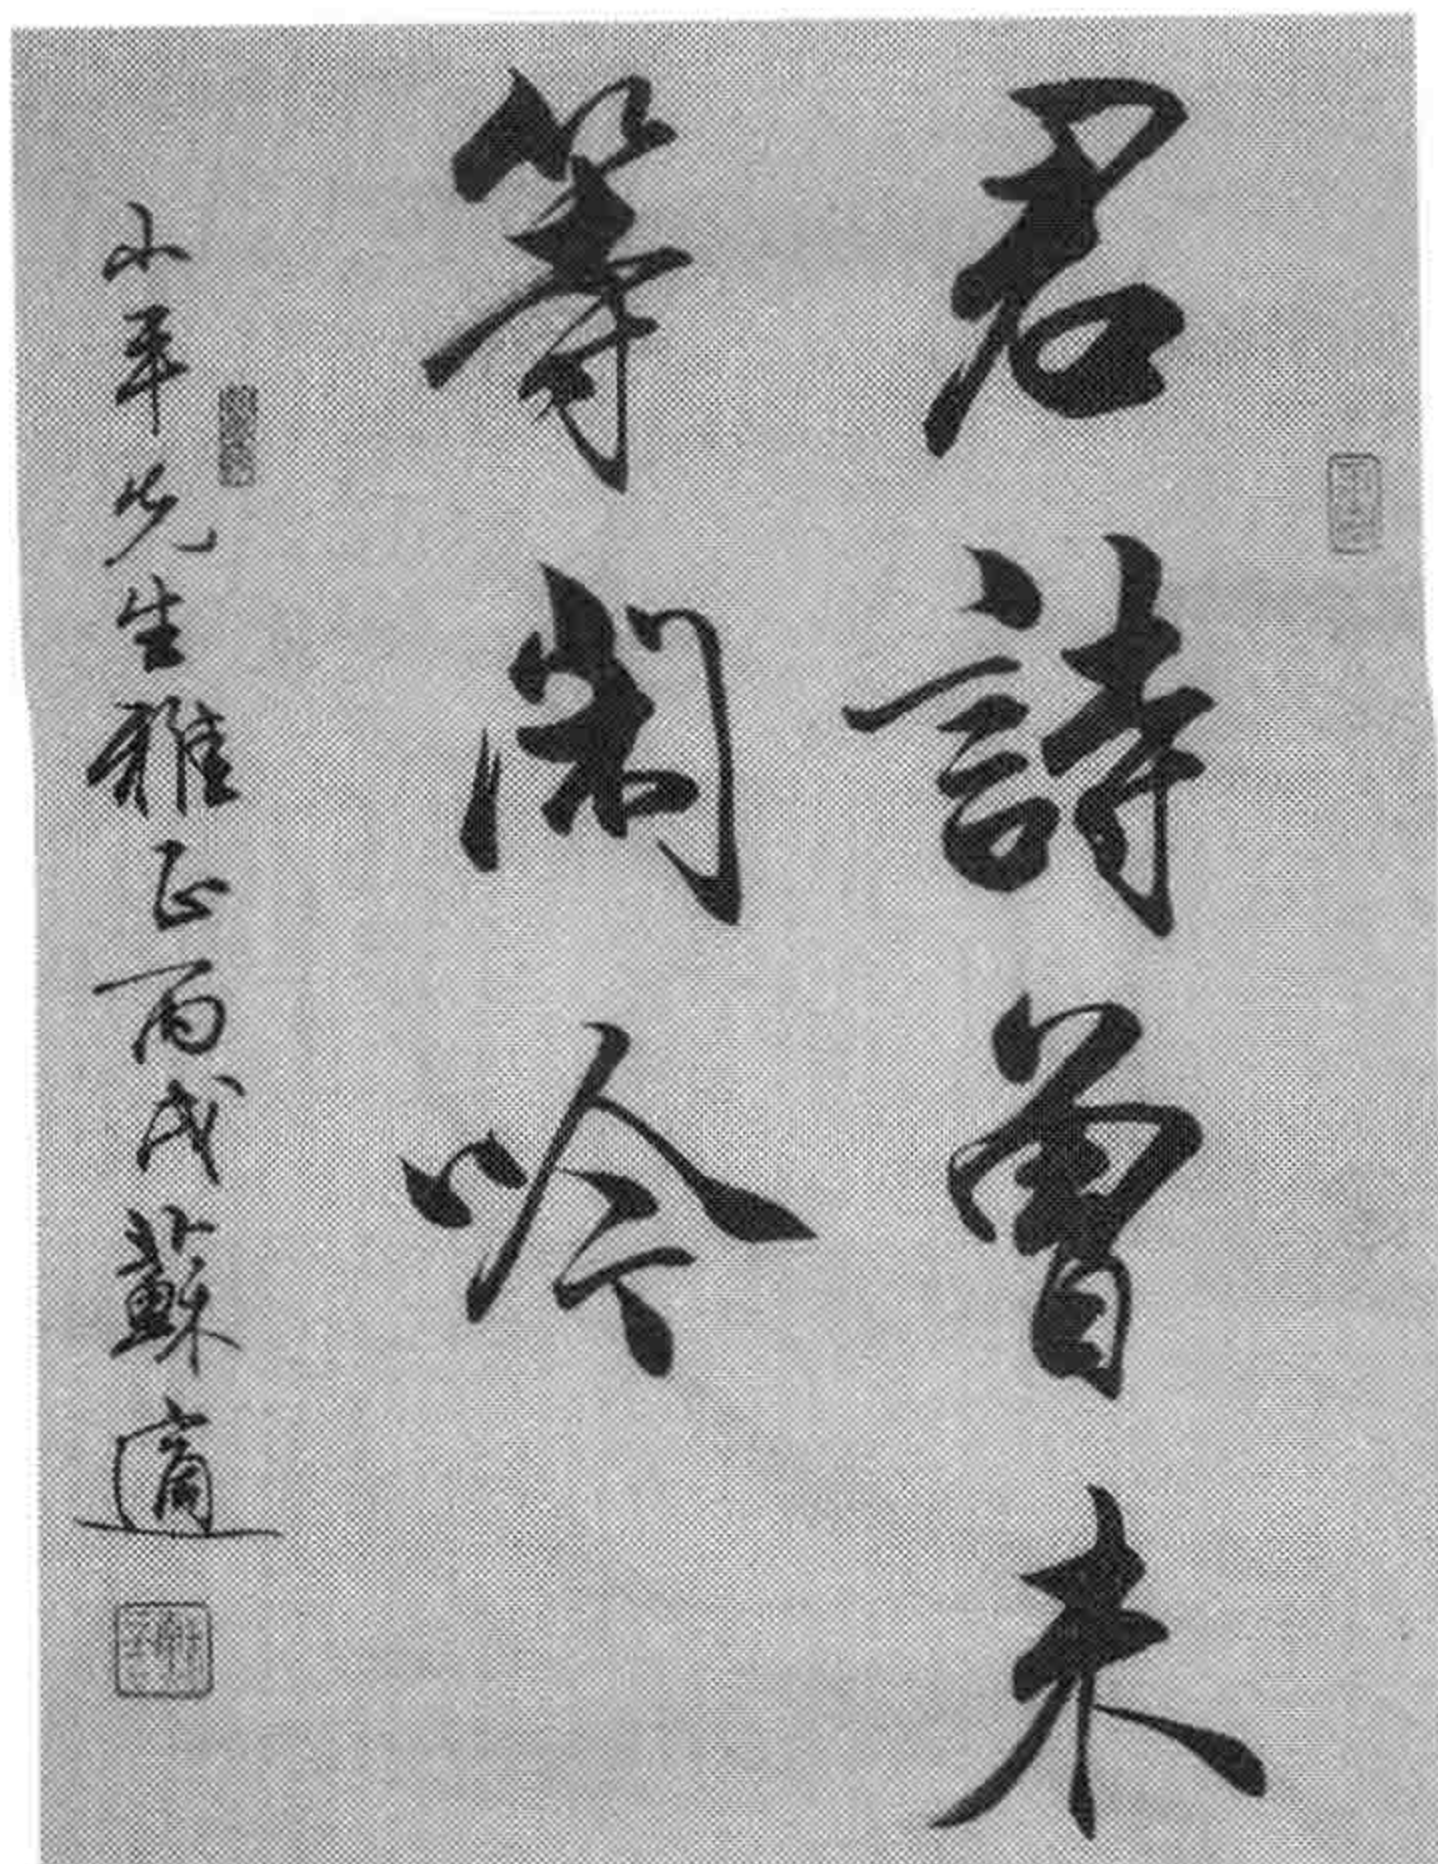 君詩曾未
等閑吟
小平先生雅正丙戌蘇適